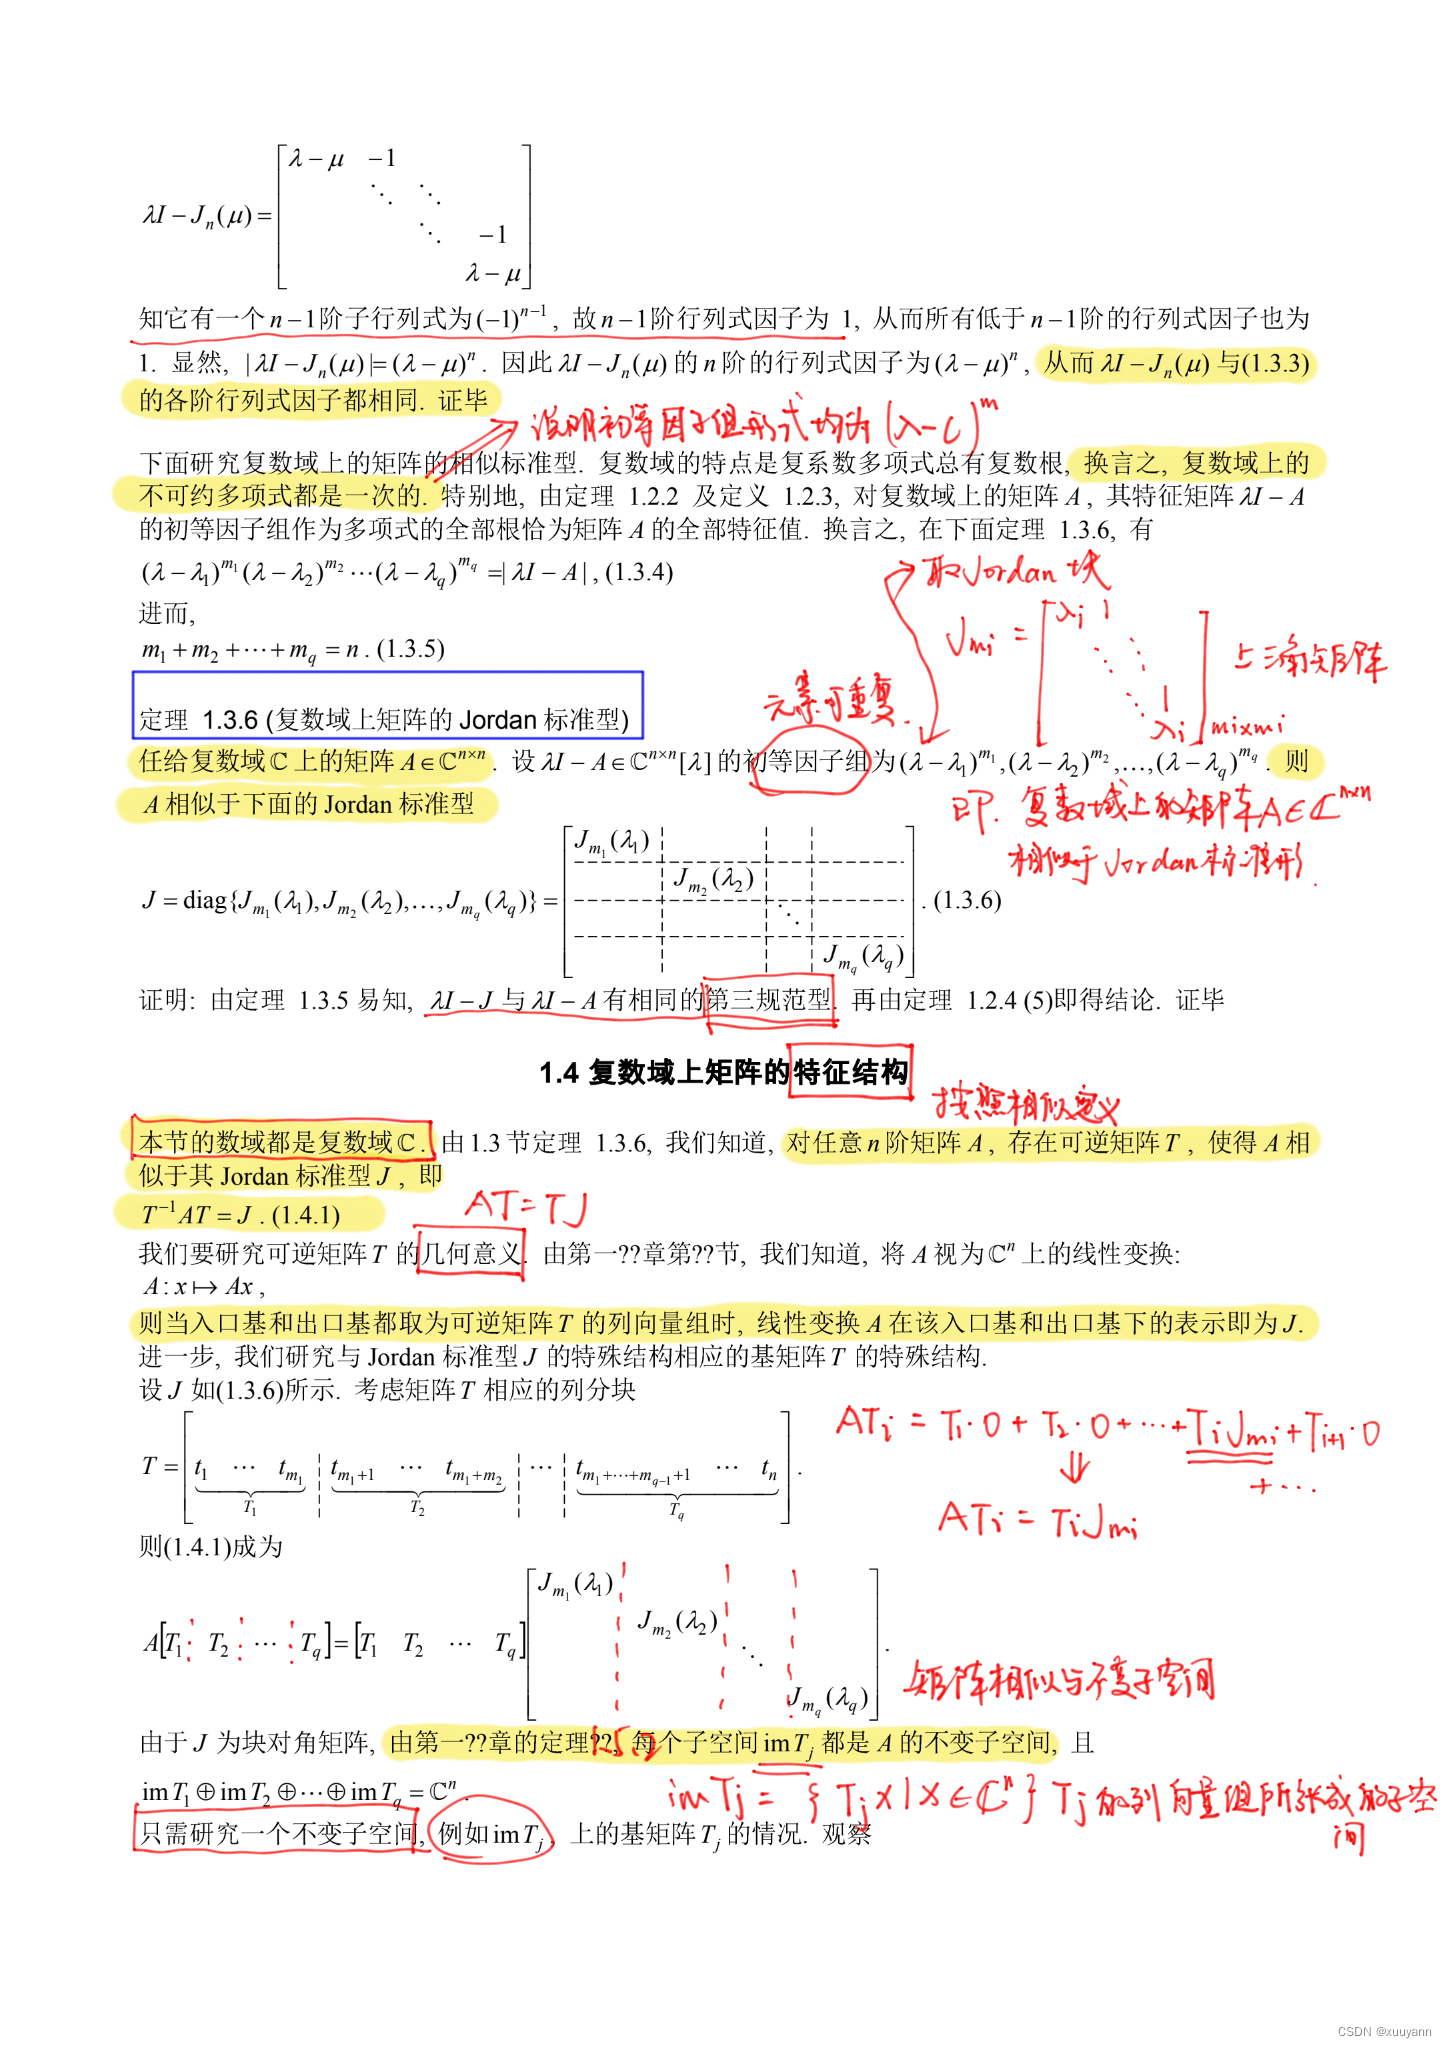 λI − J_n(μ) = [ λ − μ −1 ⋱ ⋱ ⋱ −1 λ − μ ]
知它有一个 n−1阶子行列式为(−1)^{n−1}, 故n−1阶行列式因子为 1, 从而所有低于n−1阶的行列式因子也为
1. 显然, |λI − J_n(μ)|= (λ − μ)^n. 因此λI − J_n(μ)的n阶的行列式因子为(λ − μ)^n, 从而λI − J_n(μ)与(1.3.3)
的各阶行列式因子都相同. 证毕
说明初等因子组形式均为 (λ−c)^m
下面研究复数域上的矩阵的相似标准型. 复数域的特点是复系数多项式总有复数根, 换言之, 复数域上的
不可约多项式都是一次的. 特别地, 由定理 1.2.2 及定义 1.2.3, 对复数域上的矩阵A, 其特征矩阵λI − A
的初等因子组作为多项式的全部根恰为矩阵A的全部特征值. 换言之, 在下面定理 1.3.6, 有
(λ − λ₁)^{m₁}(λ − λ₂)^{m₂}⋯(λ − λ_q)^{m_q} =|λI − A|, (1.3.4)
取Jordan块
进而,
J_{mi} = [ λi 1 ⋱ ⋱ 1 λi ]_{mi×mi} 上三角矩阵
m₁ + m₂ + ⋯ + m_q = n. (1.3.5)
元素可重复.
定理 1.3.6 (复数域上矩阵的 Jordan 标准型)
任给复数域ℂ上的矩阵A∈ℂ^{n×n}. 设λI − A∈ℂ^{n×n}[λ]的初等因子组为(λ − λ₁)^{m₁},(λ − λ₂)^{m₂},…,(λ − λ_q)^{m_q}. 则
A相似于下面的Jordan标准型
即. 复数域上的矩阵A∈ℂ^{n×n}
相似于Jordan标准形.
J = diag{J_{m₁}(λ₁), J_{m₂}(λ₂),…, J_{m_q}(λ_q)} = [ J_{m₁}(λ₁) J_{m₂}(λ₂) ⋱ J_{m_q}(λ_q) ]. (1.3.6)
证明: 由定理 1.3.5 易知, λI − J与λI − A有相同的第三规范型. 再由定理 1.2.4 (5)即得结论. 证毕
1.4 复数域上矩阵的特征结构
按照相似定义
本节的数域都是复数域ℂ. 由1.3节定理 1.3.6, 我们知道, 对任意n阶矩阵A, 存在可逆矩阵T, 使得A相
似于其Jordan标准型J, 即
T^{−1}AT = J. (1.4.1)
AT = TJ
我们要研究可逆矩阵T的几何意义. 由第一??章第??节, 我们知道, 将A视为ℂ^n上的线性变换:
A : x ↦ Ax,
则当入口基和出口基都取为可逆矩阵T的列向量组时, 线性变换A在该入口基和出口基下的表示即为J.
进一步, 我们研究与Jordan标准型J的特殊结构相应的基矩阵T的特殊结构.
设J如(1.3.6)所示. 考虑矩阵T相应的列分块
ATi = T₁·0 + T₂·0 + ⋯ + TiJ_{mi} + T_{i+1}·0
+ ⋯
T = [ t₁ ⋯ t_{m₁} ¦ t_{m₁+1} ⋯ t_{m₁+m₂} ¦ ⋯ ¦ t_{m₁+⋯+m_{q−1}+1} ⋯ t_n ].
T₁ T₂ T_q
⇓
ATi = TiJ_{mi}
则(1.4.1)成为
A[T₁ T₂ ⋯ T_q] = [T₁ T₂ ⋯ T_q][ J_{m₁}(λ₁) J_{m₂}(λ₂) ⋱ J_{m_q}(λ_q) ].
矩阵相似与不变子空间
由于J为块对角矩阵, 由第一??章的定理??, 每个子空间im T_j都是A的不变子空间, 且
im T₁ ⊕ im T₂ ⊕ ⋯ ⊕ im T_q = ℂ^n.
imTj = { Tjx | x∈ℂ^n } Tj的列向量组所张成的子空
间
只需研究一个不变子空间, 例如im T_j, 上的基矩阵T_j的情况. 观察
CSDN @xuuyann